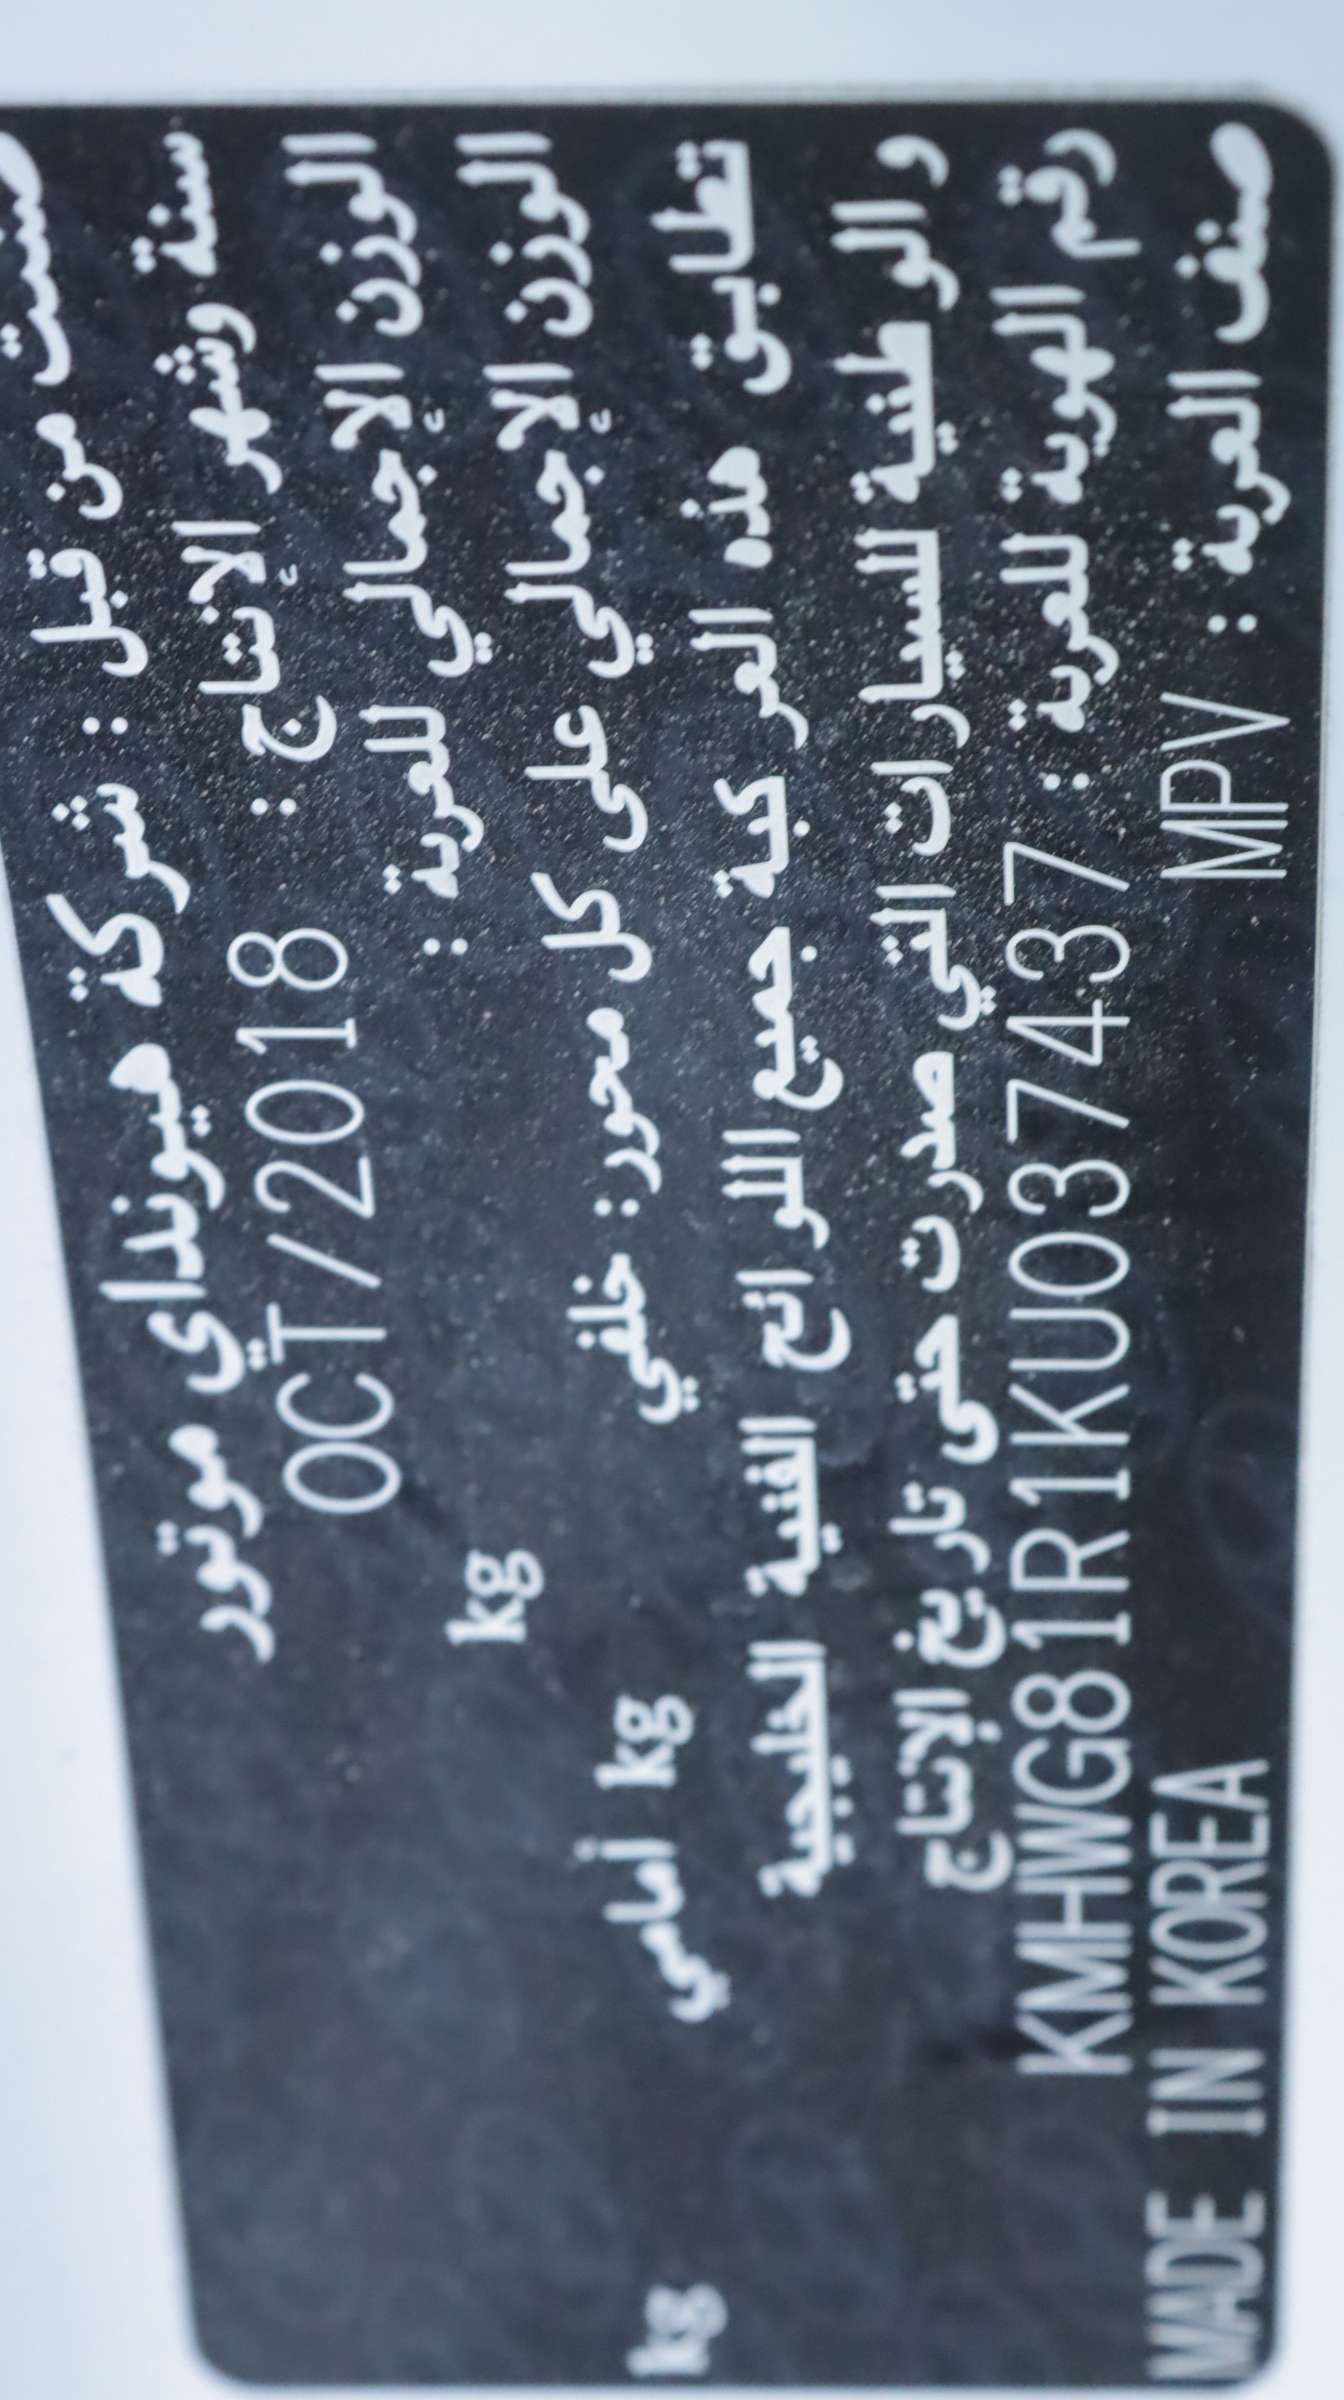 صنعت من قبل : شركة هيونداي موتور
سنة وشهر الإنتاج : OCT/2018
الوزن الإجمالي للعربة : kg
الوزن الإجمالي على كل محور : خلفي kg أمامي kg
تطابق هذه المركبة جميع اللوائح الفنية الخليجية
و الوطنية للسيارات التي صدرت حتى تاريخ الإنتاج
رقم الهوية للعربة : KMHWG81R1KU037437
صنف العربة : MPV MADE IN KOREA